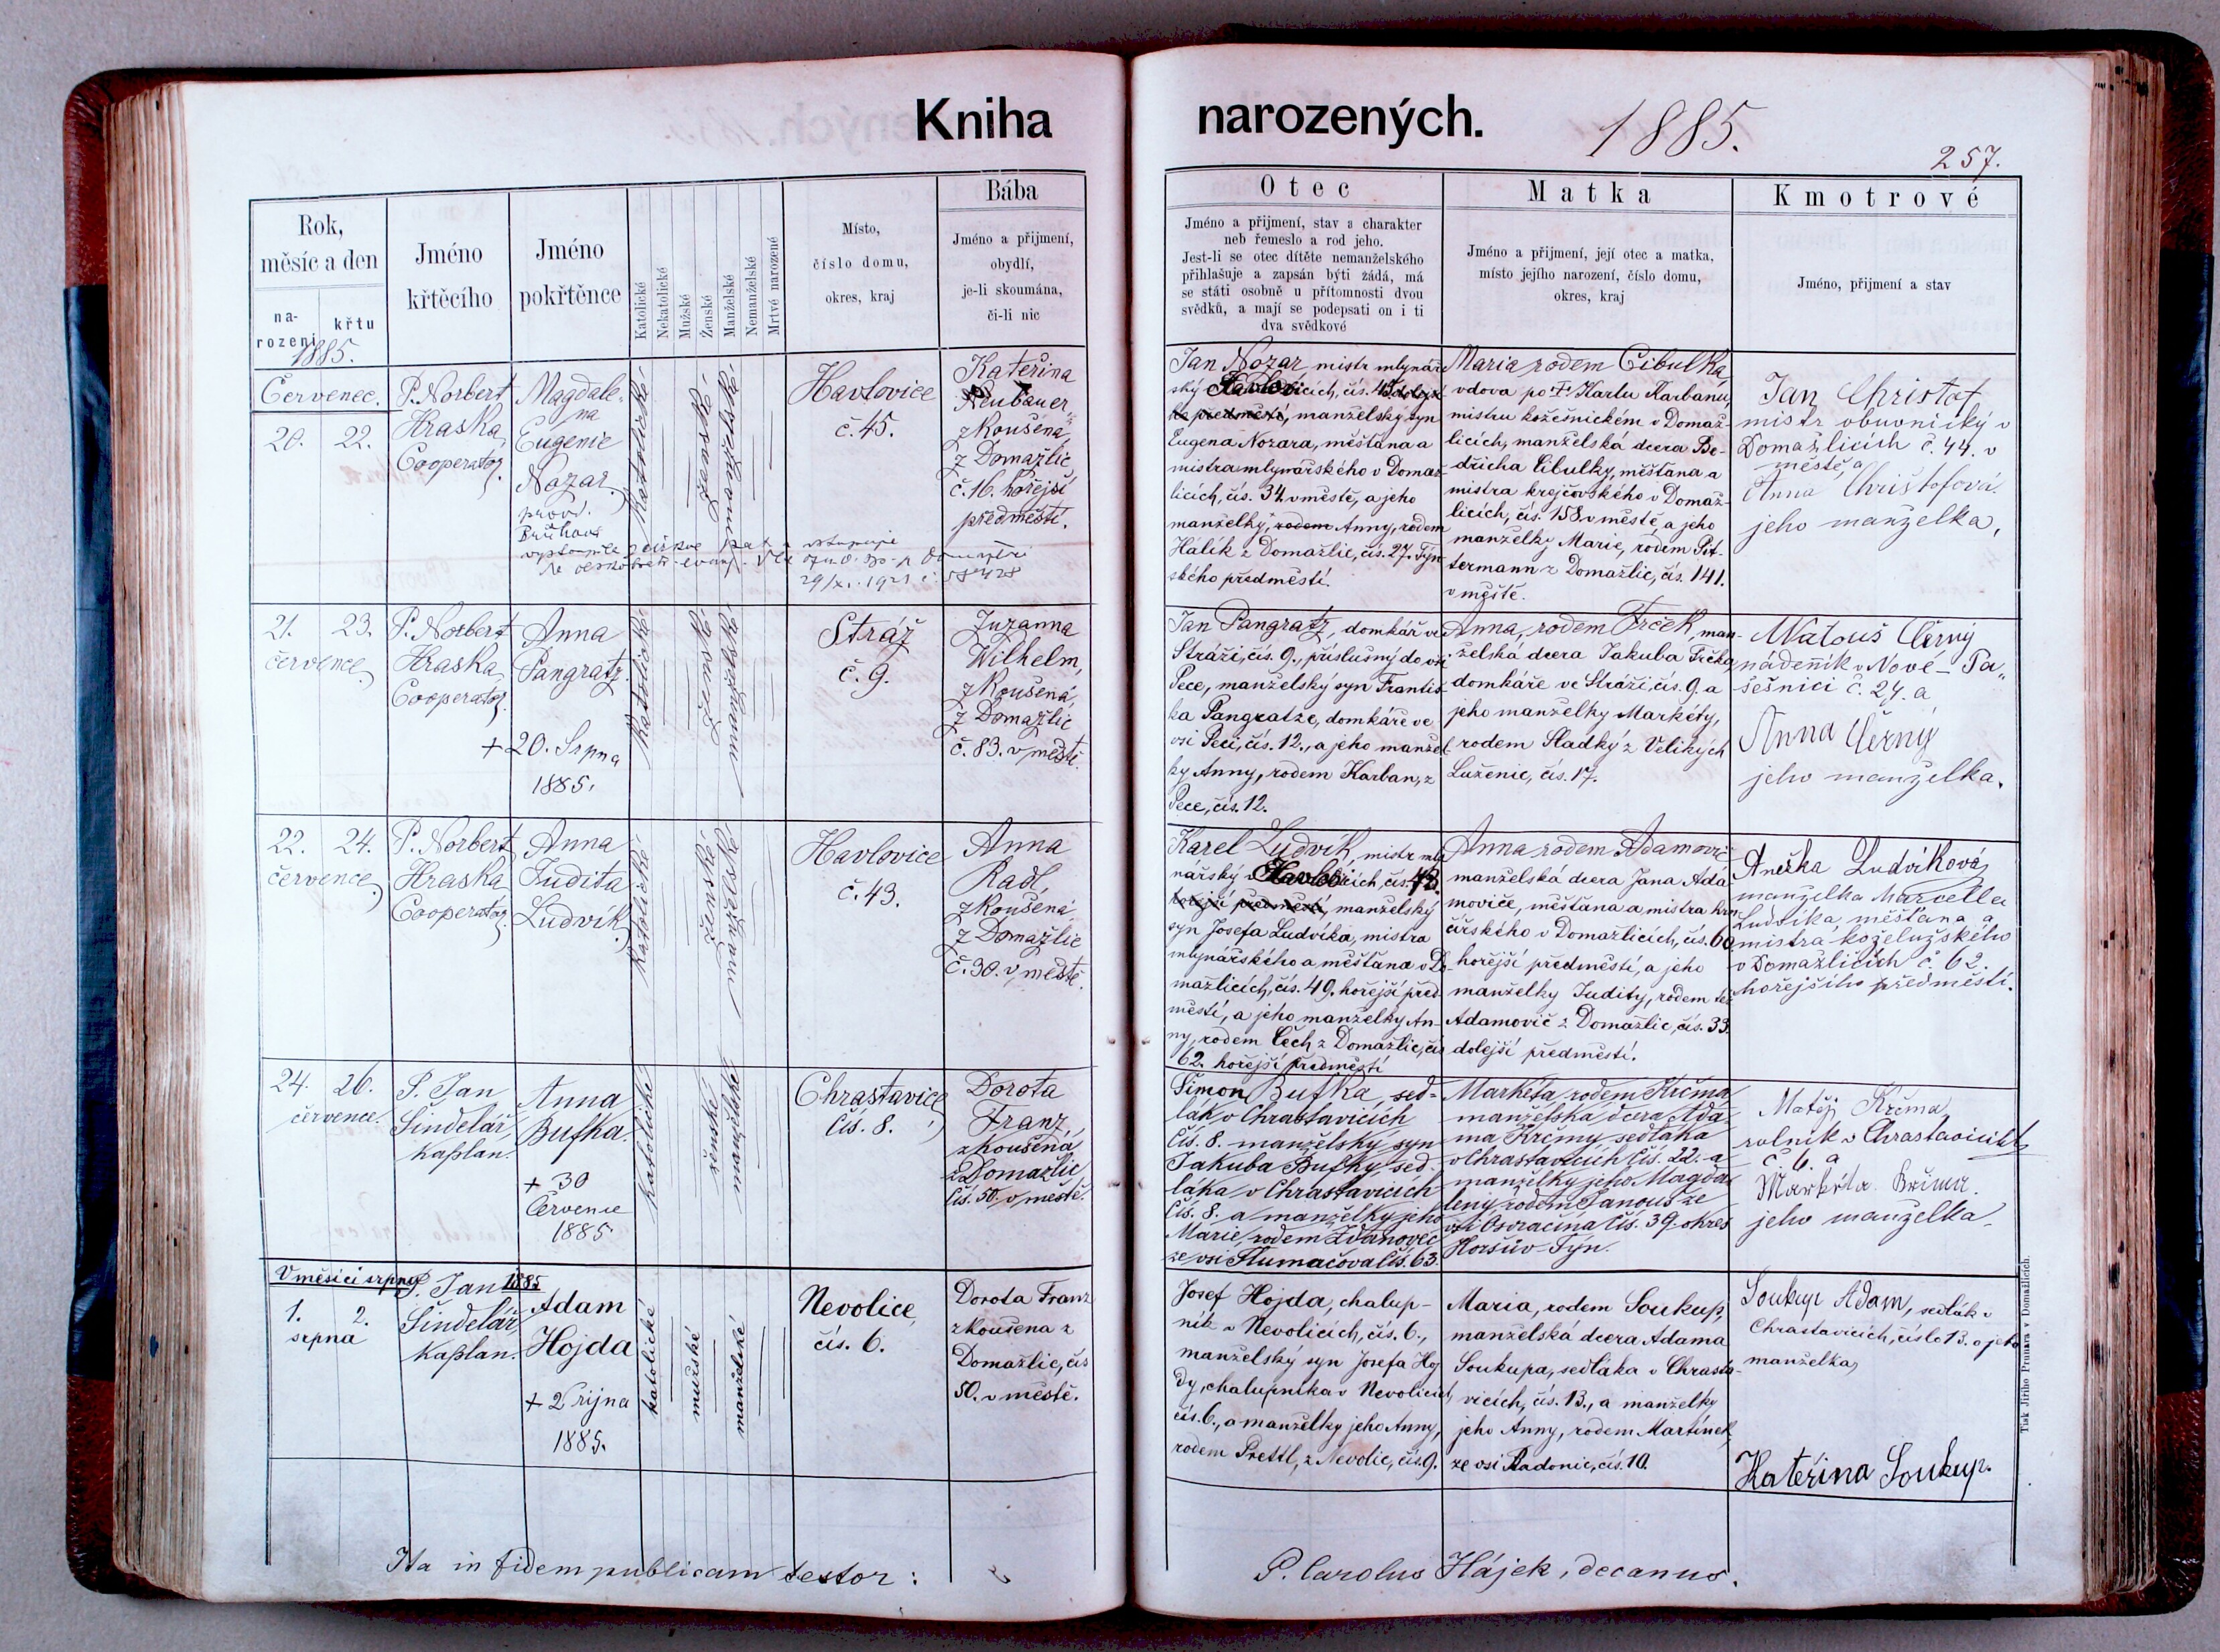 Kniha
narozených.
1885.
257.
Rok,
měsíc a den
na-
rození
křtu
1885.
Jméno
křtěcího
Jméno
pokřtěnce
Katolické
Nekatolické
Mužské
Ženské
Manželské
Nemanželské
Mrtvé narozené
Místo,
číslo domu,
okres, kraj
Bába
Jméno a přijmení,
obydlí,
je-li skoumána,
či-li nic
Otec
Jméno a přijmení, stav a charakter
neb řemeslo a rod jeho.
Jest-li se otec dítěte nemanželského
přihlašuje a zapsán býti žádá, má
se státi osobně u přítomnosti dvou
svědků, a mají se podepsati on i ti
dva svědkové
Matka
Jméno a přijmení, její otec a matka,
místo jejího narození, číslo domu,
okres, kraj
Kmotrové
Jméno, přijmení a stav
Červenec.
20. 22.
P. Norbert
Hraska,
Cooperator.
Magdale-
na
Eugenie
Nozar.
katolické
ženské
manželské
Havlovice
č. 45.
Kateřina
Neubauer
zkoušená,
z Domažlic
č. 16. hořejší
předměstí.
29/XI. 1921
Jan Nozar, mistr mlynář-
ský v Havlovicích, čís. 45
předměstí, manželský syn
Eugena Nozara, měšťana a
mistra mlynářského v Domaž-
licích, čís. 34 v městě, a jeho
manželky, rodem Anny, rodem
Hálík z Domažlic, čís. 27. Týn-
ského předměstí.
Maria rodem Cibulka,
vdova po † Karlu Karbanu,
mistru kožešnickém v Domaž-
licích, manželská dcera Be-
dřicha Cibulky, měšťana a
mistra krejčovského v Domaž-
licích, čís. 158 v městě, a jeho
manželky Marie, rodem Pit-
termann z Domažlic, čís. 141.
v městě.
Jan Christof
mistr obuvnický v
Domažlicích č. 44. v
městě, a
Anna Christofová.
jeho manželka,
21. 23.
července.
P. Norbert
Hraska,
Cooperator.
Anna
Pangratz.
+ 20. Srpna
1885.
katolické
ženské
manželské
Stráž
č. 9.
Zuzanna
Wilhelm,
zkoušená,
z Domažlic
č. 83. v městě.
Jan Pangratz, domkář ve
Stráži, čís. 9., příslušný do vsi
Pece, manželský syn Františ-
ka Pangratze, domkáře ve
vsi Peci, čís. 12., a jeho manžel-
ky Anny, rodem Karban, z
Pece, čís. 12.
Anna, rodem Frček, man-
želská dcera Jakuba Frčka,
domkáře ve Stráži, čís. 9. a
jeho manželky Markéty,
rodem Sladký z Velikých
Luženic, čís. 17.
Matouš Černý
nádeník v Nové-Pa-
sešnici č. 24. a
Anna Černý
jeho manželka.
22. 24.
července.
P. Norbert
Hraska,
Cooperator.
Anna
Judita
Ludvík.
katolické
ženské
manželské
Havlovice
č. 43.
Anna
Radl,
zkoušená
z Domažlic
č. 30. v městě.
Karel Ludvík, mistr mly-
nářský v Havlovicích, čís. 43.
hořejší předměstí, manželský
syn Josefa Ludvíka, mistra
mlynářského a měšťana v Do-
mažlicích, čís. 49. hořejší před-
městí, a jeho manželky An-
ny, rodem Čech z Domažlic, čís.
62. hořejší předměstí
Anna rodem Adamovič
manželská dcera Jana Ada-
moviče, měšťana a mistra hrn-
čířského v Domažlicích, čís. 60.
hořejší předměstí, a jeho
manželky Judity, rodem též
Adamovič z Domažlic, čís. 33.
dolejší předměstí.
Anežka Ludvíková,
manželka Marcella
Ludvíka, měšťana a
mistra koželužského
v Domažlicích č. 62.
hořejšího předměstí.
24. 26.
července.
P. Jan
Šindelář,
kaplan.
Anna
Bufka.
+ 30
Července
1885
katolické
ženské
manželské
Chrastavice,
Čís. 8.
Dorota
Franz,
zkoušená
z Domažlic
Čís. 50. v městě.
Šimon Bufka, sed-
lák v Chrastavicích
Čís. 8. manželský syn
Jakuba Bufky, sed-
láka v Chrastavicích
Čís. 8. a manželky jeho
Marie, rodem Zdanovec
ze vsi Tlumačova Čís. 63.
Markéta rodem Krčma
manželská dcera Ada-
ma Krčmy, sedláka
v Chrastavicích Čís. 22. a
manželky jeho Magda-
leny rodem Janouš ze
vsi Osvračína Čís. 39. okres
Horšův-Týn.
Matěj Krčma,
rolník v Chrastavicích
č. 6. a
Markéta Krčma.
jeho manželka
V měsíci srpnu 1885
1. 2.
srpna
P. Jan
Šindelář,
kaplan.
Adam
Hojda
+ 2 října
1885.
katolické
mužské
manželské
Nevolice,
čís. 6.
Dorota Franz
zkoušena z
Domažlic, čís
50. v městě.
Josef Hojda, chalup-
ník v Nevolicích, čís. 6.,
manželský syn Josefa Hoj-
dy, chalupníka v Nevolicích,
čís. 6., a manželky jeho Anny,
rodem Prettl, z Nevolic, čís. 9.
Maria, rodem Soukup,
manželská dcera Adama
Soukupa, sedláka v Chrasta-
vicích, čís. 13., a manželky
jeho Anny, rodem Martínek,
ze vsi Radonic, čís. 10.
Soukup Adam, sedlák v
Chrastavicích, číslo 13. a jeho
manželka,
Kateřina Soukup.
Ita in fidem publicam testor:
P. Carolus Hájek, decanus.
Tisk Jiřího Prunara v Domažlicích.